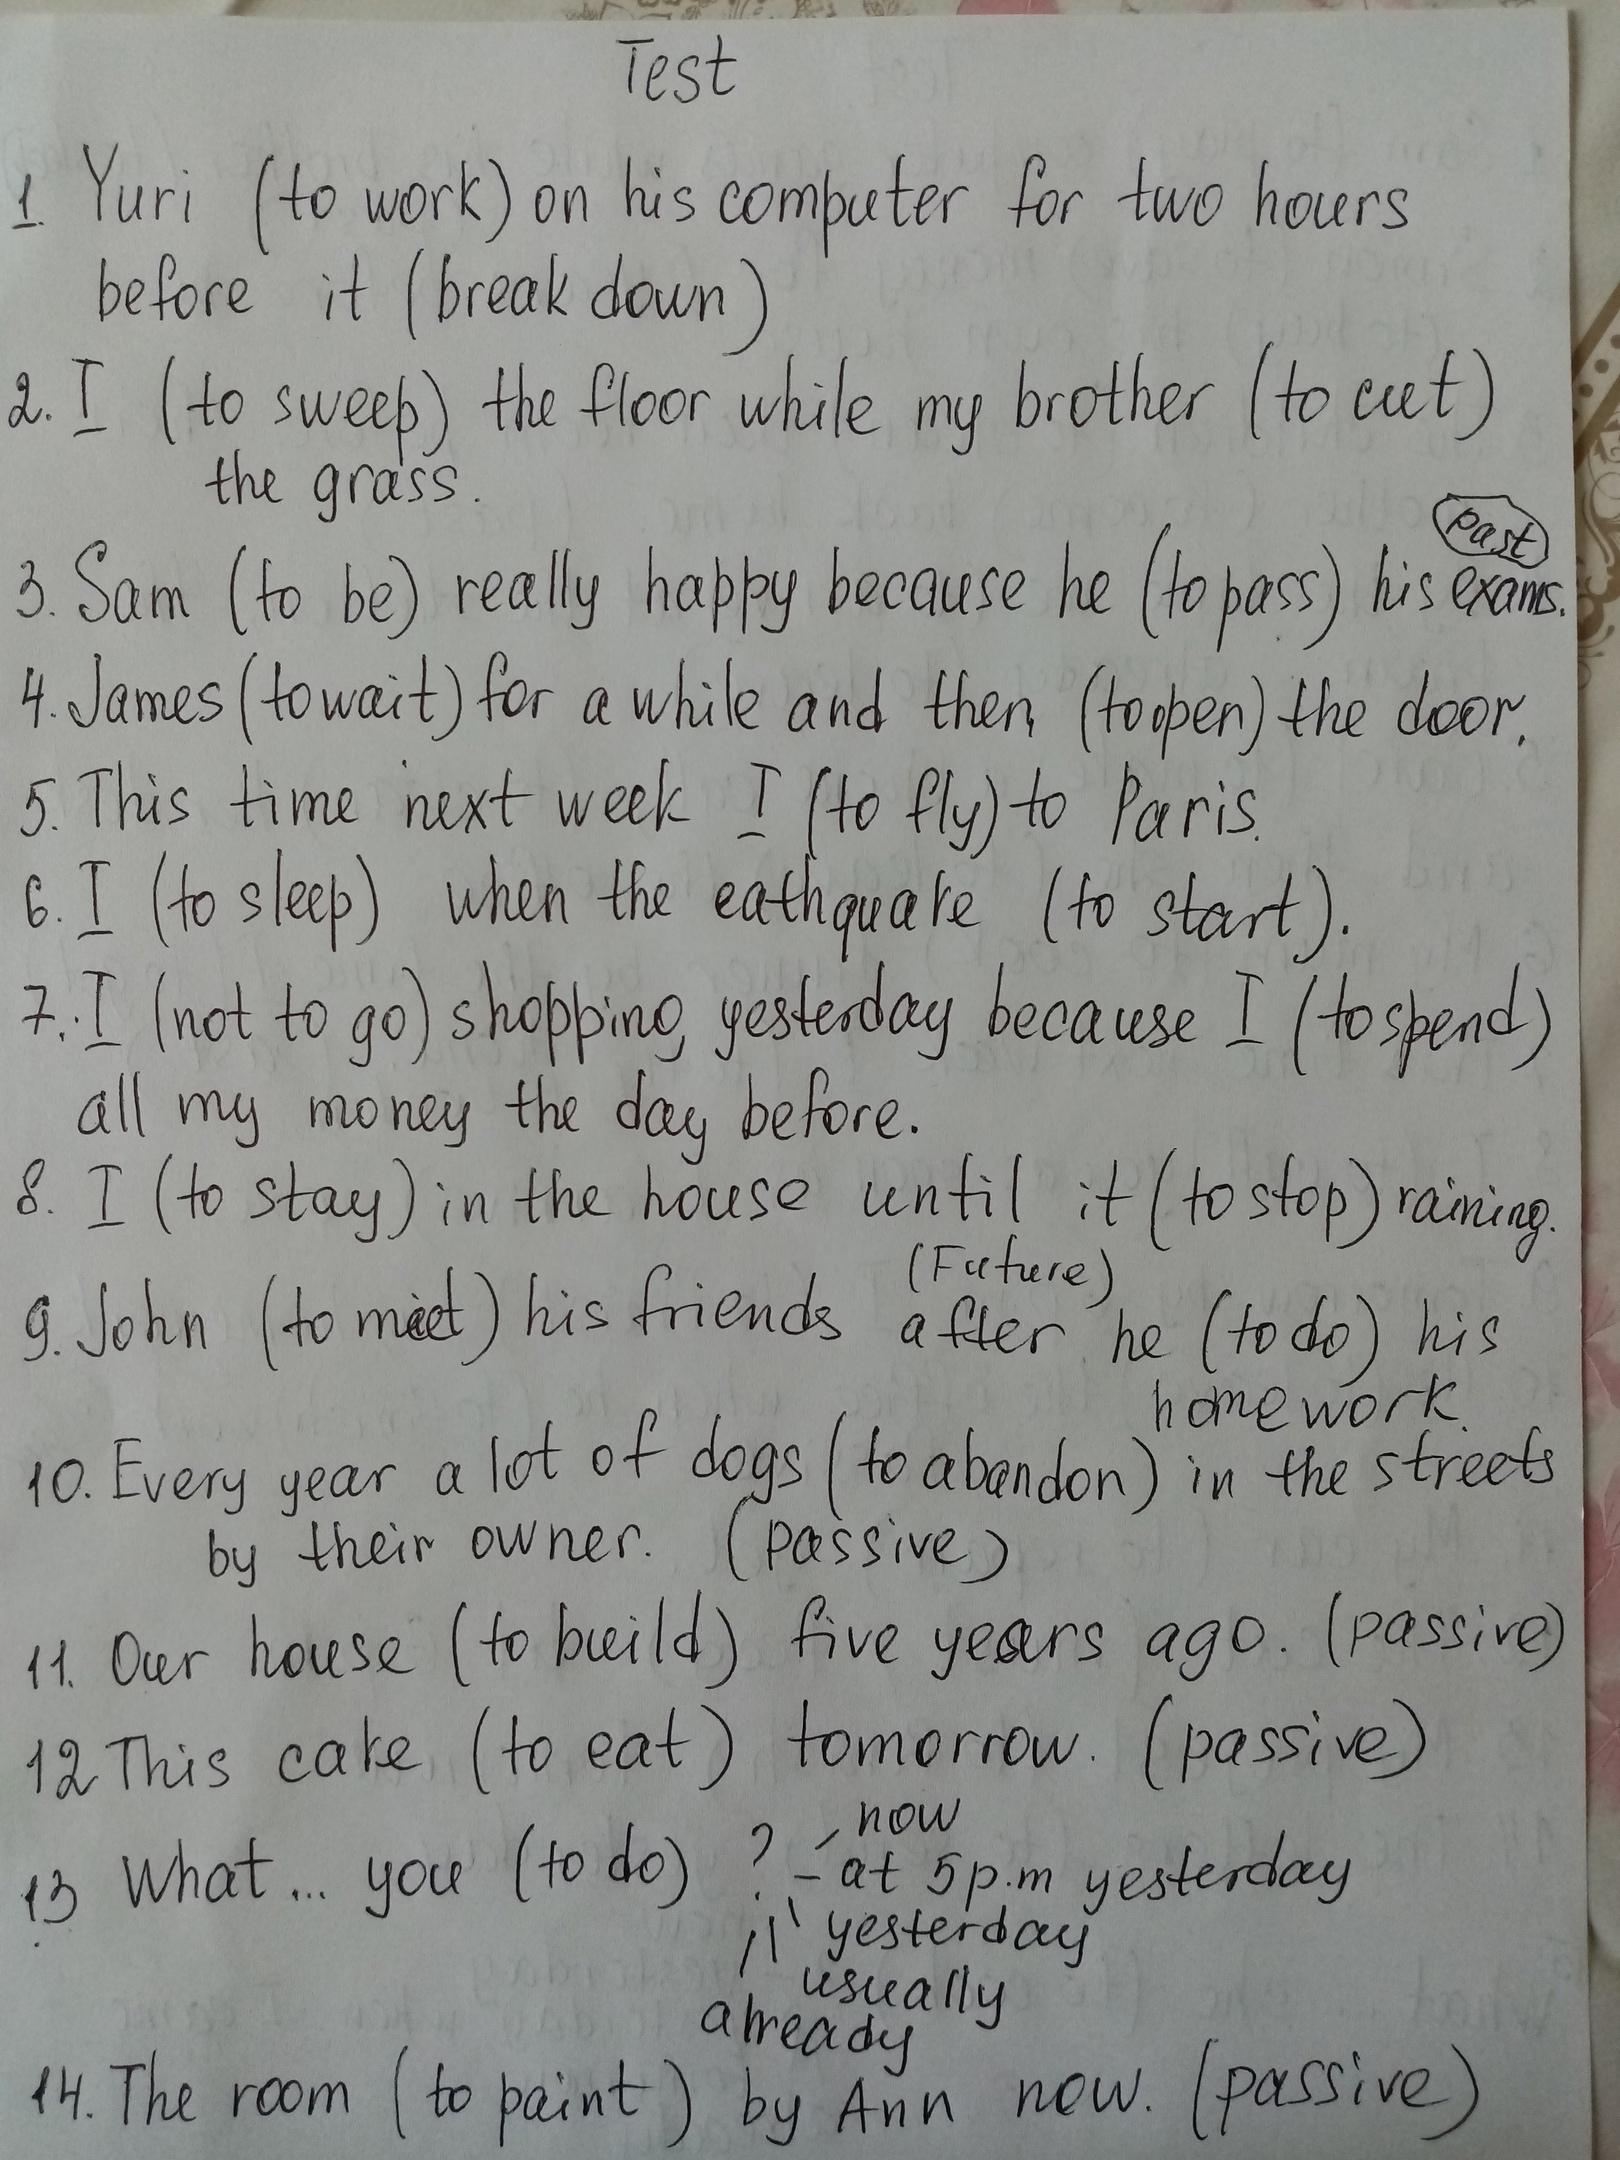 Test
1. Yuri (to work) on his computer for two hours
before it (break down)
2. I (to sweep) the floor while my brother (to cut)
the grass.
past
3. Sam (to be) really happy because he (to pass) his exams.
4. James (to wait) for a while and then (to open) the door.
5. This time next week I (to fly) to Paris.
6. I (to sleep) when the eathquake (to start).
7. I (not to go) shopping yesterday because I (to spend)
all my money the day before.
8. I (to stay) in the house until it (to stop) raining.
(Future)
9. John (to meet) his friends after he (to do) his
homework.
10. Every year a lot of dogs (to abandon) in the streets
by their owner. (passive)
11. Our house (to build) five years ago. (passive)
12 This cake (to eat) tomorrow. (passive)
now
13 What... you (to do) ? - at 5 p.m yesterday
yesterday
usually
already
14. The room (to paint) by Ann now. (passive)